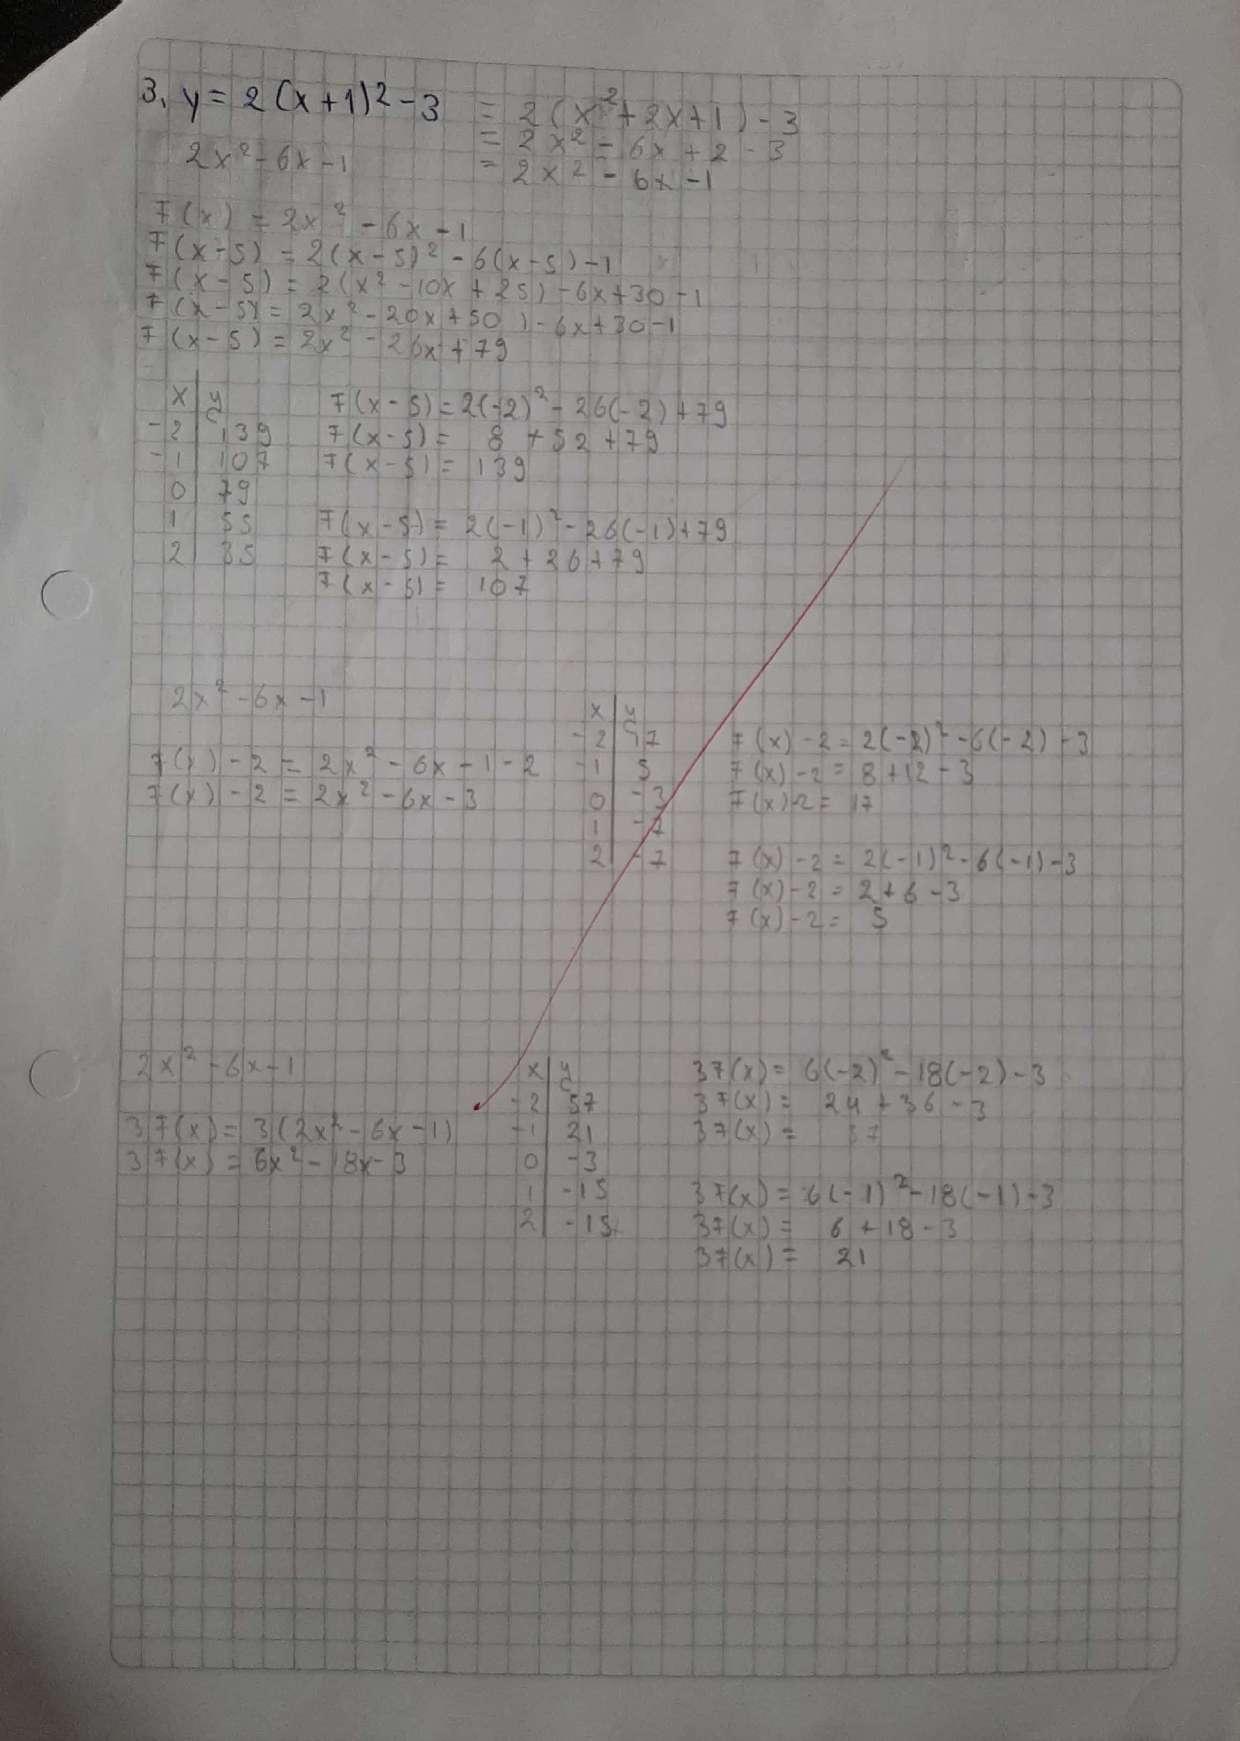 3. y = 2(x+1)² - 3 = 2(x²+2x+1) - 3
= 2x² - 6x + 2 - 3
2x² - 6x - 1 = 2x² - 6x - 1
7(x) = 2x² - 6x - 1
7(x-5) = 2(x-5)² - 6(x-5) - 1
7(x-5) = 2(x² - 10x + 25) - 6x + 30 - 1
7(x-5) = 2x² - 20x + 50) - 6x + 30 - 1
7(x-5) = 2x² - 26x + 79
x y
-2 139
-1 107
0 79
1 55
2 35
7(x-5) = 2(-2)² - 26(-2) + 79
7(x-5) = 8 + 52 + 79
7(x-5) = 139
7(x-5) = 2(-1)² - 26(-1) + 79
7(x-5) = 2 + 26 + 79
7(x-5) = 107
2x² - 6x - 1
7(x) - 2 = 2x² - 6x - 1 - 2
7(x) - 2 = 2x² - 6x - 3
x y
-2 17
-1 5
0 -3
1 -7
2 -7
7(x) - 2 = 2(-2)² - 6(-2) - 3
7(x) - 2 = 8 + 12 - 3
7(x) - 2 = 17
7(x) - 2 = 2(-1)² - 6(-1) - 3
7(x) - 2 = 2 + 6 - 3
7(x) - 2 = 5
2x² - 6x - 1
37(x) = 3(2x² - 6x - 1)
37(x) = 6x² - 18x - 3
x y
-2 57
-1 21
0 -3
1 -15
2 -15
37(x) = 6(-2)² - 18(-2) - 3
37(x) = 24 + 36 - 3
37(x) = 57
37(x) = 6(-1)² - 18(-1) - 3
37(x) = 6 + 18 - 3
37(x) = 21